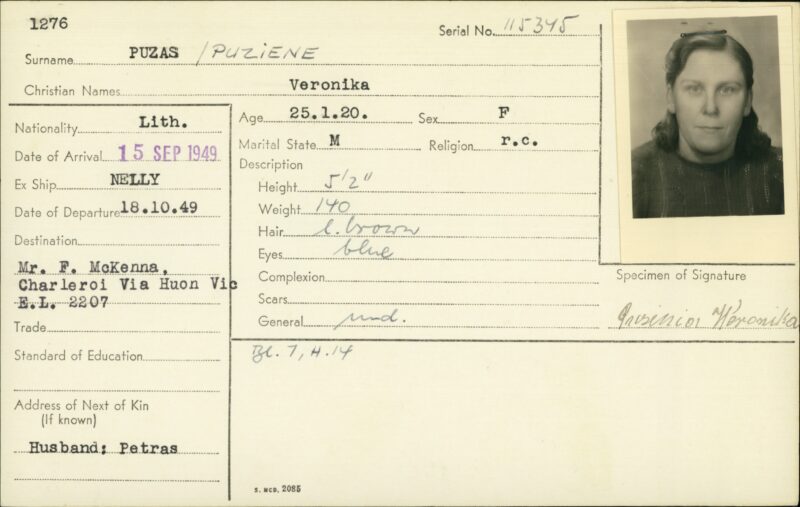 1276
Serial No. 115345
Surname PUZAS /PUZIENE
Christian Names Veronika
Nationality Lith.
Date of Arrival 15 SEP 1949
Ex Ship NELLY
Date of Departure 18.10.49
Destination
Mr. F. McKenna,
Charleroi Via Huon Vic
E.L. 2207
Trade
Standard of Education
Address of Next of Kin
(If known)
Husband; Petras
Age 25.1.20. Sex F
Marital State M Religion r.c.
Description
Height 5'2"
Weight 140
Hair l. brown
Eyes blue
Complexion
Scars
General md.
Bl. 7, H.14
S. MCD. 2085
Specimen of Signature
Veronika